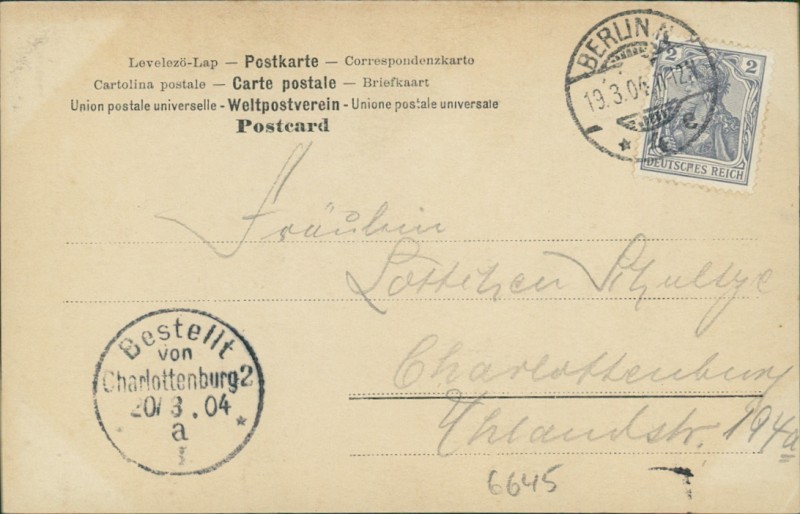 Levelező-Lap — Postkarte — Correspondenzkarte
Cartolina postale — Carte postale — Briefkaart
Union postale universelle - Weltpostverein - Unione postale universale
Postcard
BERLIN N.
19.3.04. 11-12V.
* 4 e.
2 2
DEUTSCHES REICH
Fräulein
Lottchen Schultze
Charlottenburg
Uhlandstr. 194a
Bestellt
von
Charlottenburg 2
20/3.04
a
6645